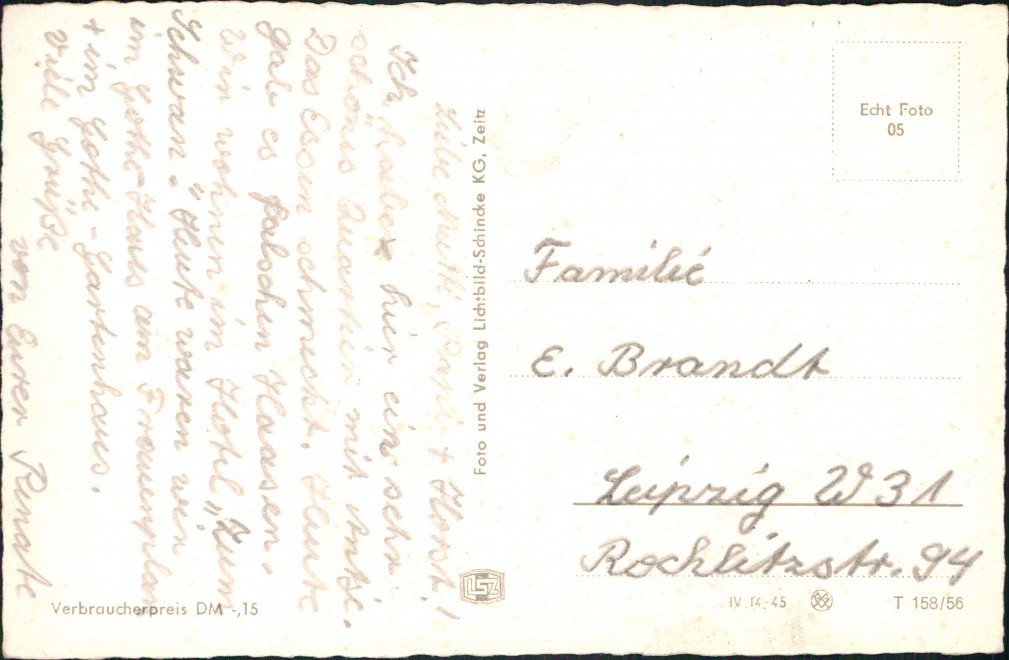 Liebe Mutti, Vati + Horst!
Ich habe hier ein sehr
schönes Quartier mit Antje.
Das Essen schmeckt. Heute
gab es falschen Haasen.
Wir wohnen im Hotel „Zum
Schwan." Heute waren wir
im Gothe-Haus am Frauenplan
+ im Gothe-Gartenhaus.
Viele Grüße
von Eurer Renate
Foto und Verlag Lichtbild-Schincke KG, Zeitz
Verbraucherpreis DM -,15
Echt Foto
05
Familie
E. Brandt
Leipzig W 31
Rochlitzstr. 94
LSZ
IV 14-45
T 158/56